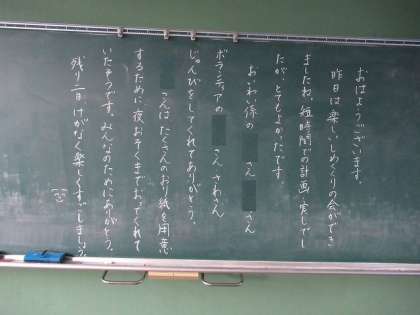 おはようございます。
昨日は楽しいしめくくりの会ができ
ましたね。短時間での計画・実しでし
たが、とてもよかったです。
おいわい係の さん さん
ボランティアの さん さわさん
じゅんびをしてくれてありがとう。
さんは たくさんのおり紙を用意
するために夜おそくまでおってくれて
いたそうです。みんなのためにありがとう。
残り一日 けがなく楽しくすごしましょう